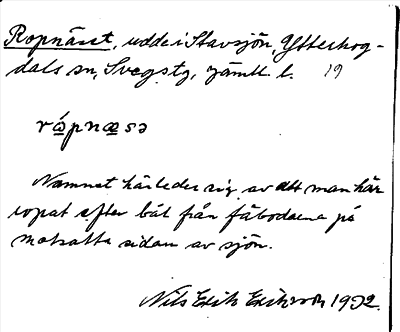 Ropnäset, udde i Stavsjön, Ytterhog-
dals sn, Svegs tg, Jämtl. l. 19
rɷpnæsə
Namnet härleder sig av att man här
ropat efter båt från fäbodarna på
motsatta sidan av sjön.
Nils Erik Eriksson 1932.